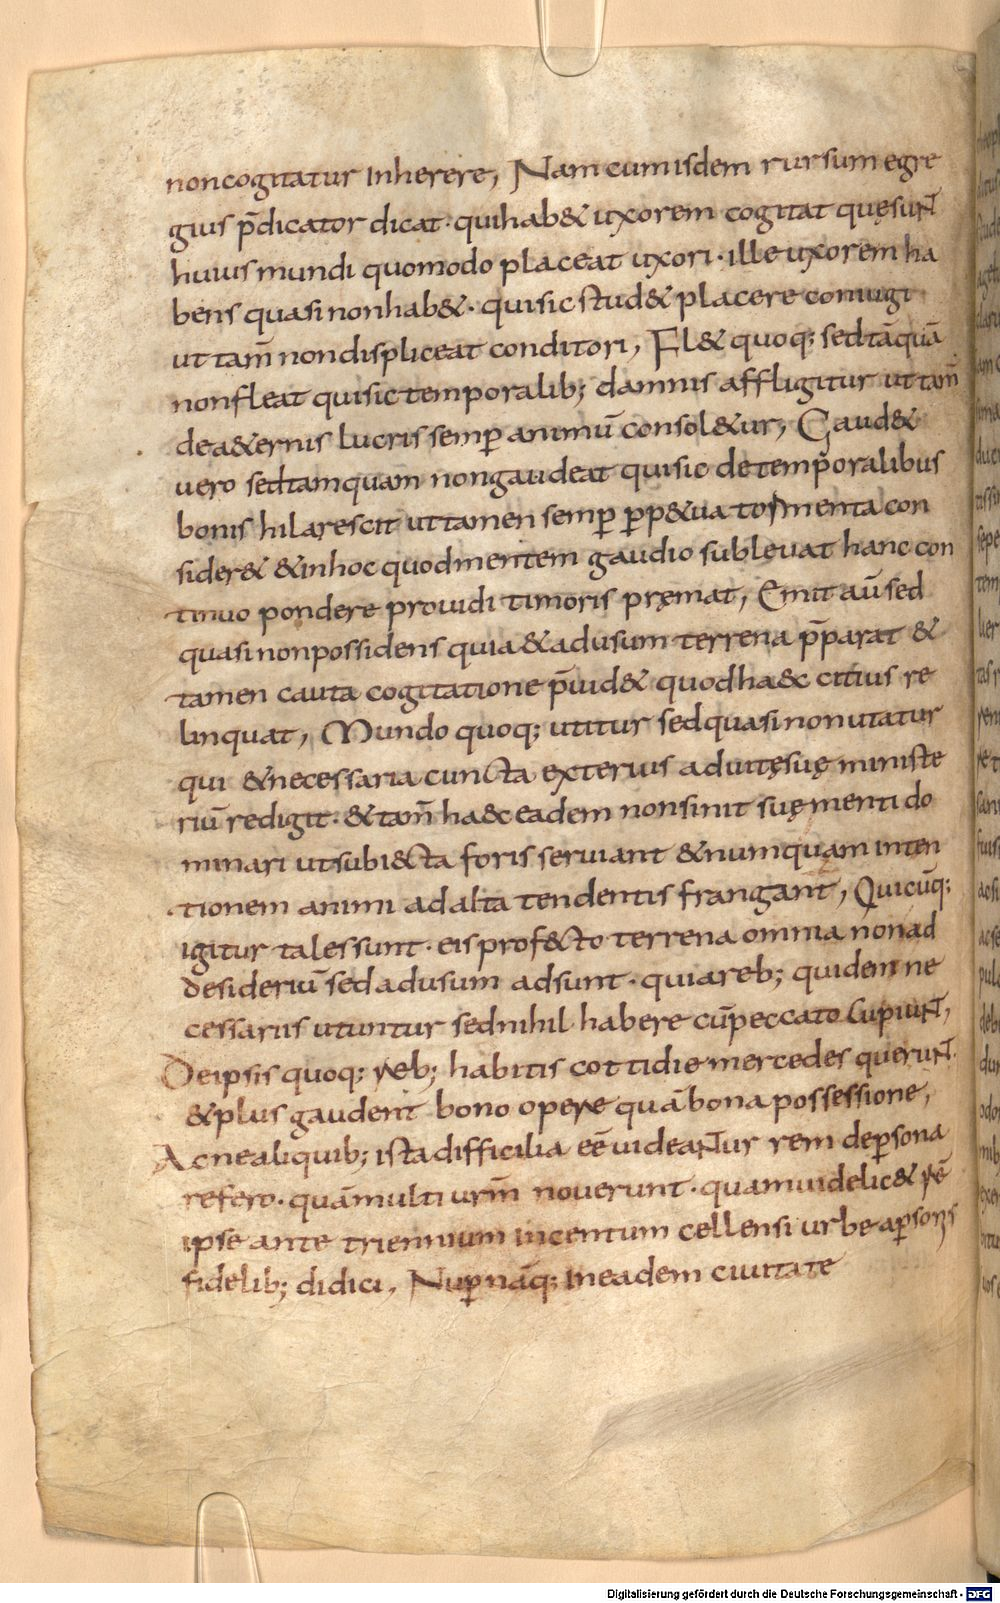 noncogitatur Inherere, Nam cum isdem rursum egre
gius p̄dicator dicat· quihab& uxorem cogitat quęsuNT
huius mundi quomodo placeat uxori· ille uxorem ha
bens quasi nonhab&· quisic stud& placere coniugi
ut tam̄ nondispliceat conditori, Fl& quoq; sed tāquā
nonfleat quisic temporalib; damnis affligitur ut tam̄
de a&ernis lucris semp̲ animū consol&ur, Gaud&
uero sedtamquam nongaudeat quisic detemporalibus
bonis hilarescit uttamen semp̲ p̲p&ua tormenta con
sider& &inhoc quodmentem gaudio subleuat hanc con
tinuo pondere prouidi timoris pręmat, Emit aū sed
quasi nonpossidens quia &adusum terrena p̄parat &
tamen cauta cogitatione p̄uid& quodha&c citius re
linquat, Mundo quoq; utitur sedquasinonutatur
qui &necessaria cuncta exterius aduitęsuę ministe
riū redigit· &tam̄ ha&c eadem nonsinit suę menti do
minari utsubi&cta foris seruiant &numquam inten
tionem animi adalta tendentis frangant, Quicūq;
igitur talessunt· eis prof&cto terrena omnia nonad
desideriū sedadusum adsunt· quiareb; quidem ne
cessariis utuntur sednihil habere cūpeccato cupiuNT,
Deipsis quoq; reb; habitis cottidie mercedes queruNT·
&plus gaudent bono opere quā bona possessione,
Ac nealiquib; ista difficilia eē uideaNTur rem dep̲sona
refero· quāmulti urm̄ nouerunt· quamuidelic& rē
ipse ante triennium incentum cellensi urbe ap̲sonis
fidelib; didici, Nup̲nāq; Ineadem ciuitate
Digitalisierung gefördert durch die Deutsche Forschungsgemeinschaft - DFG